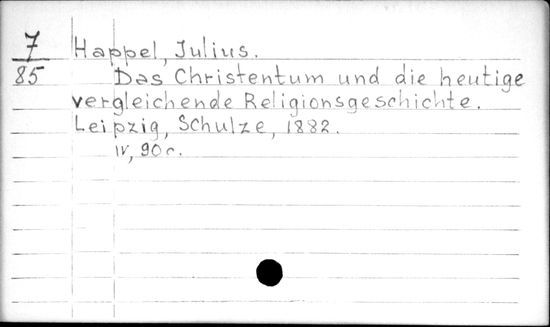 7
85
Happel, Julius.
Das Christentum und die heutige
vergleichende Religionsgeschichte.
Leipzig, Schulze, 1882.
IV, 90 c.